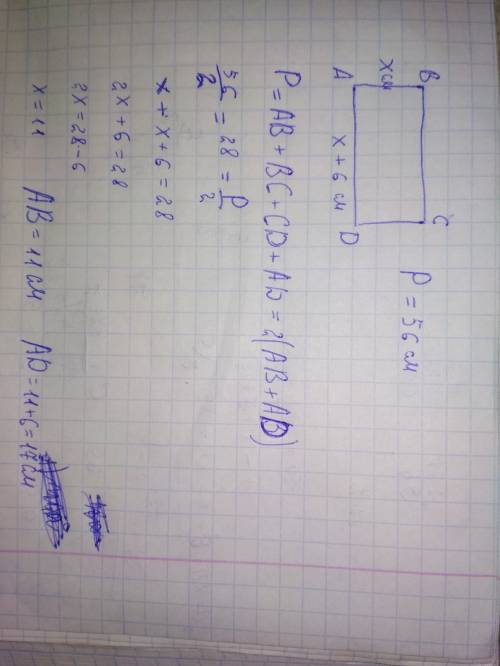 B C
x см P = 56 см
A x + 6 см D
P = AB + BC + CD + AD = 2(AB + AD)
56/2 = 28 = P/2
x + x + 6 = 28
2x + 6 = 28
2x = 28 - 6
x = 11 AB = 11 см AD = 11 + 6 = 17 см